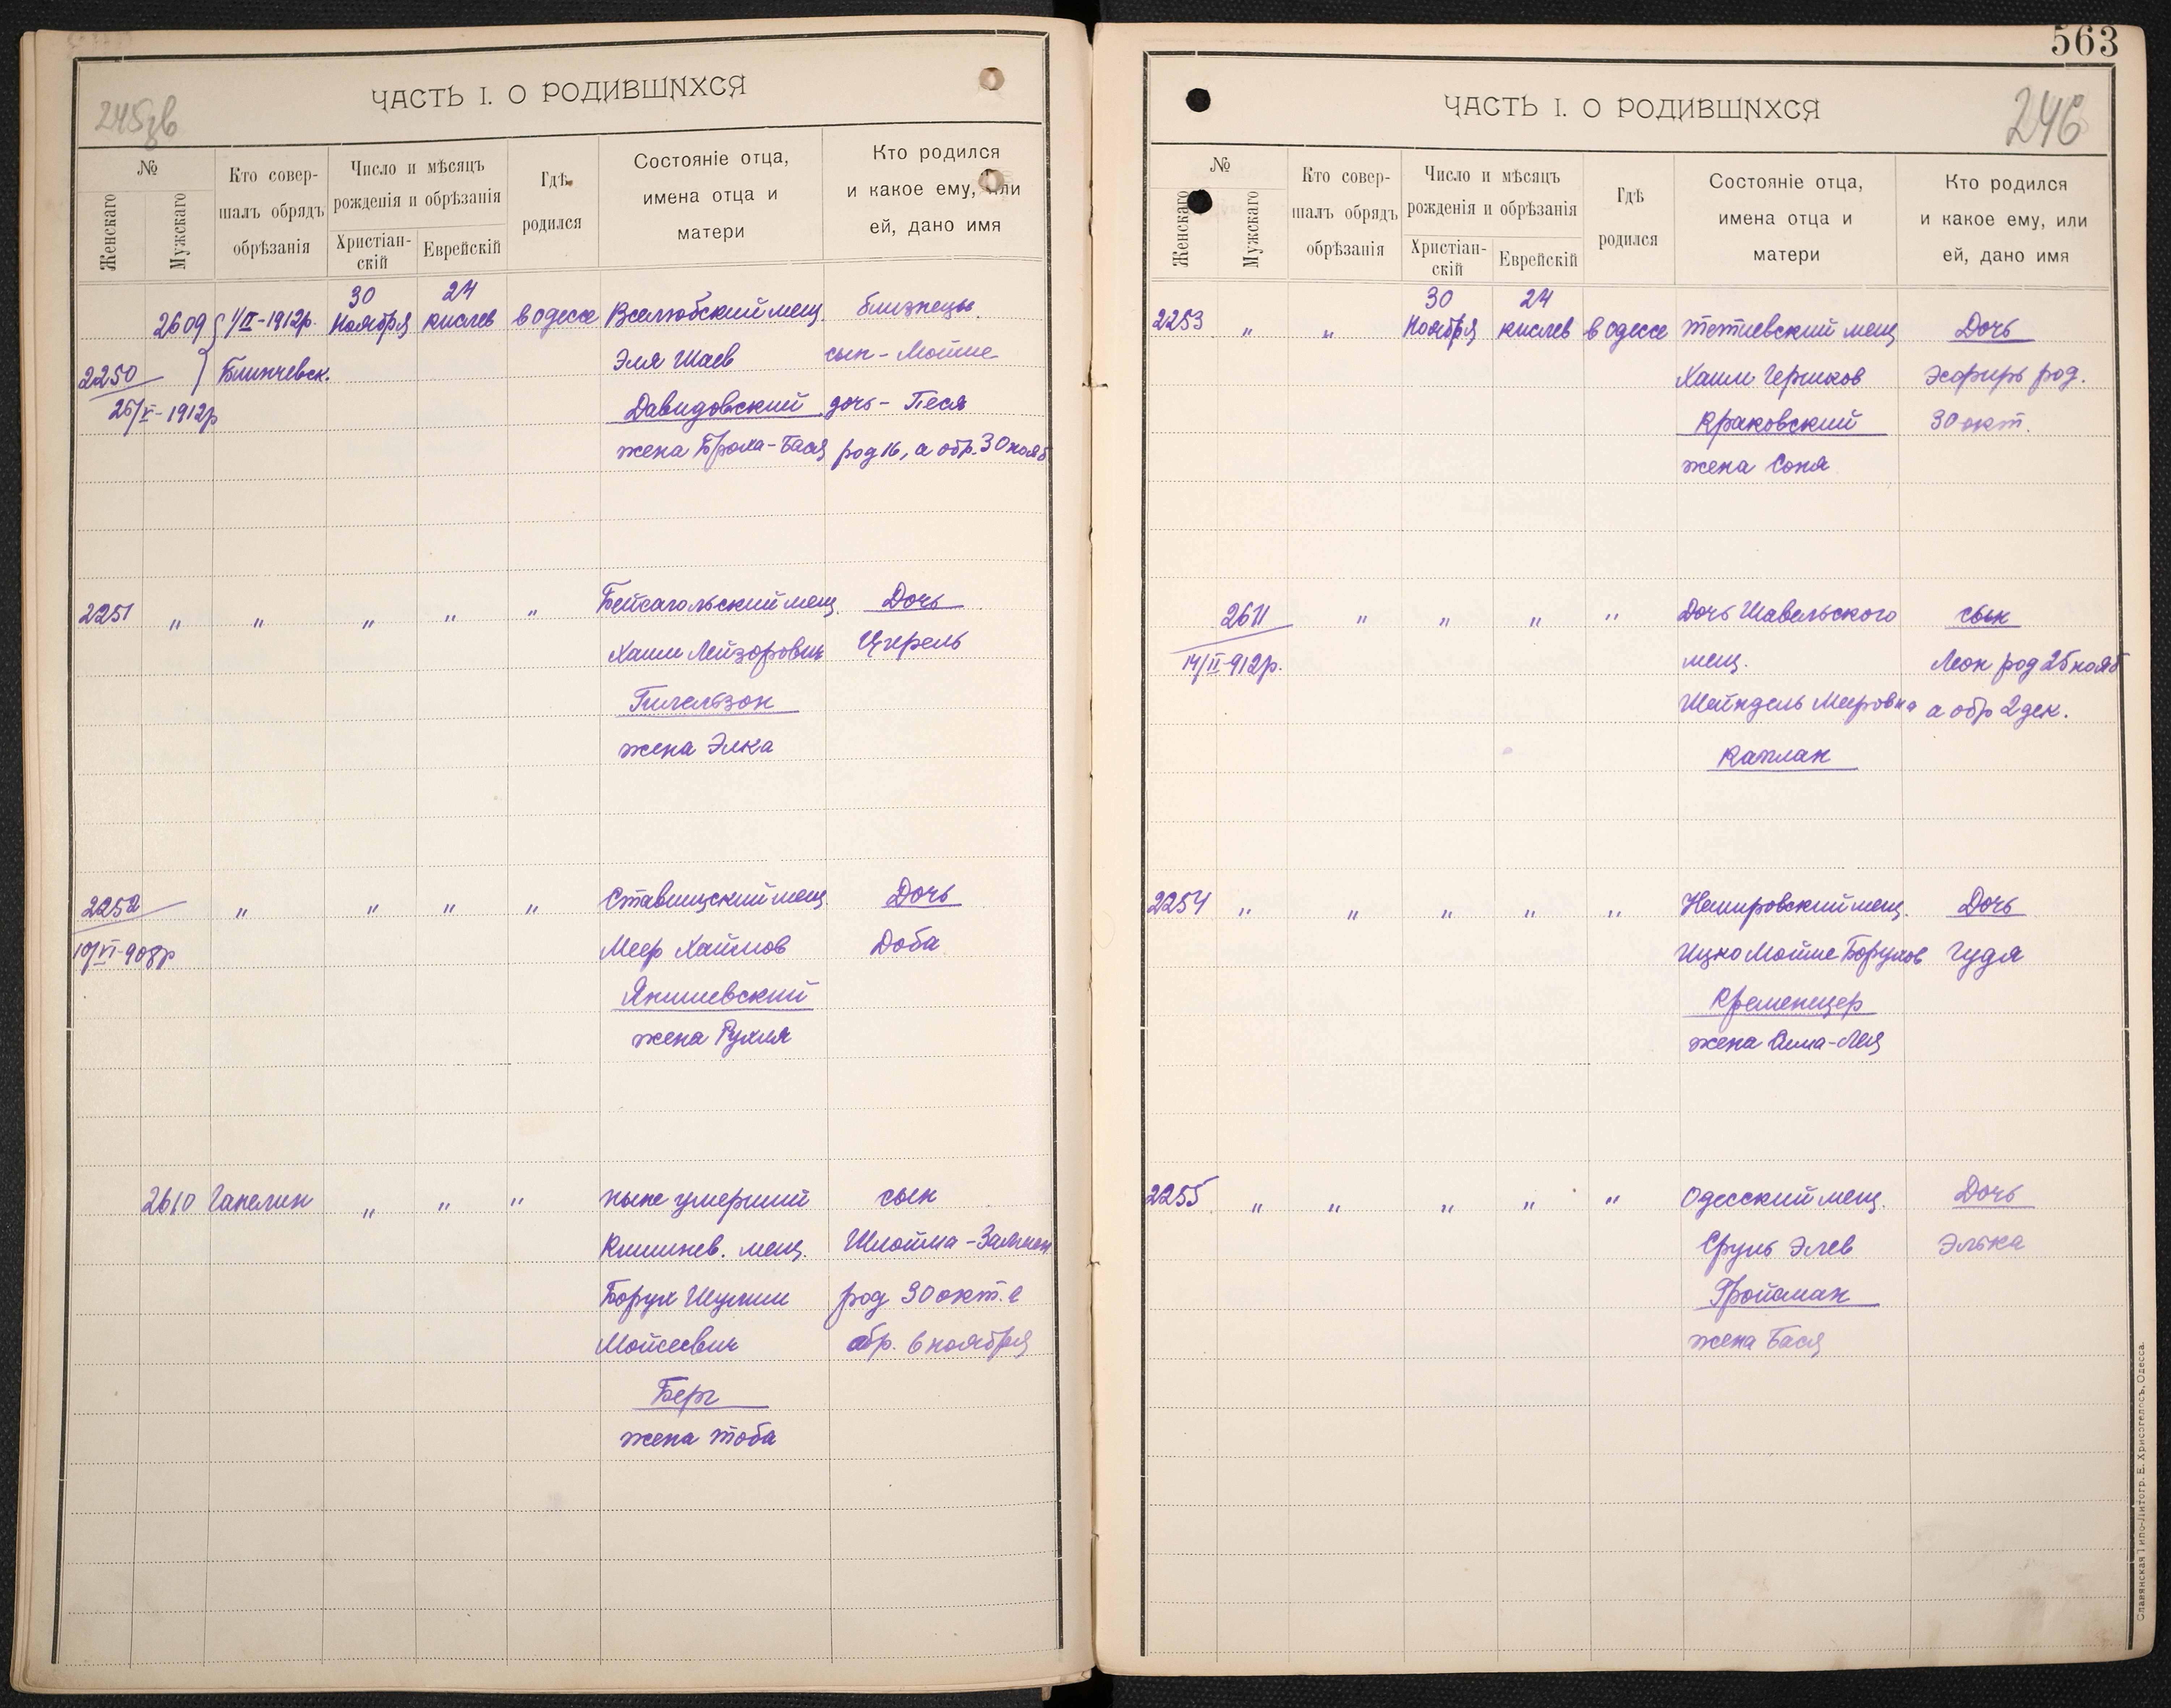 245зв
ЧАСТЬ I. О РОДИВШИХСЯ
№
Женскаго
Мужскаго
Кто совер-
шалъ обрядъ
обрѣзанія
Число и мѣсяцъ
рожденія и обрѣзанія
Христіан-
скій
Еврейскій
Гдѣ
родился
Состояніе отца,
имена отца и
матери
Кто родился
и какое ему, или
ей, дано имя
30 24
2609 1/II-1912р. Ноября кислев в одессе Вселюбский мещ. близнецы
Эля Шаев сын - Мойше
2250 Блинчевск.
26/V-1912р Давидовский дочь - Песя
жена Броха-Бася род 16, а обр. 30 нояб
2251 " " " " " Бейсагольский мещ. Дочь
Хаим Лейзорович Церель
Гилельзон
жена Элка
2252 " " " " Ставищский мещ. Дочь
10/VI-908р Меер Хаимов Доба
Янишевский
жена Рухля
2610 Гапелин " " " ныне умерший сын
Кишинев. мещ. Шлойма-Залмен
Борух Шулим род 30 окт. а
Мойсеевич обр. 6 ноября
Берг
жена Тоба
563
246
ЧАСТЬ I. О РОДИВШИХСЯ
№
Женскаго
Мужскаго
Кто совер-
шалъ обрядъ
обрѣзанія
Число и мѣсяцъ
рожденія и обрѣзанія
Христіан-
скій
Еврейскій
Гдѣ
родился
Состояніе отца,
имена отца и
матери
Кто родился
и какое ему, или
ей, дано имя
30 24
2253 " " Ноября кислев в одессе Тетиевский мещ Дочь
Хаим Гершков Эсфирь род.
Краковский 30 окт.
жена Соня
2611 " " " " Дочь Шавельского сын
14/II-912р. мещ. Леон род 25 нояб
Шейндель Мееровна а обр 2 дек.
Каплан
2254 " " " " " Немировский мещ. Дочь
Ицко Мойше Борухов Гудя
Кременецер
жена Сима-Лея
2255 " " " " " Одесский мещ. Дочь
Сруль Элев Элька
Гройсман
жена Бася
Славянская Типо-Литогр. Е. Хрисогелосъ, Одесса.